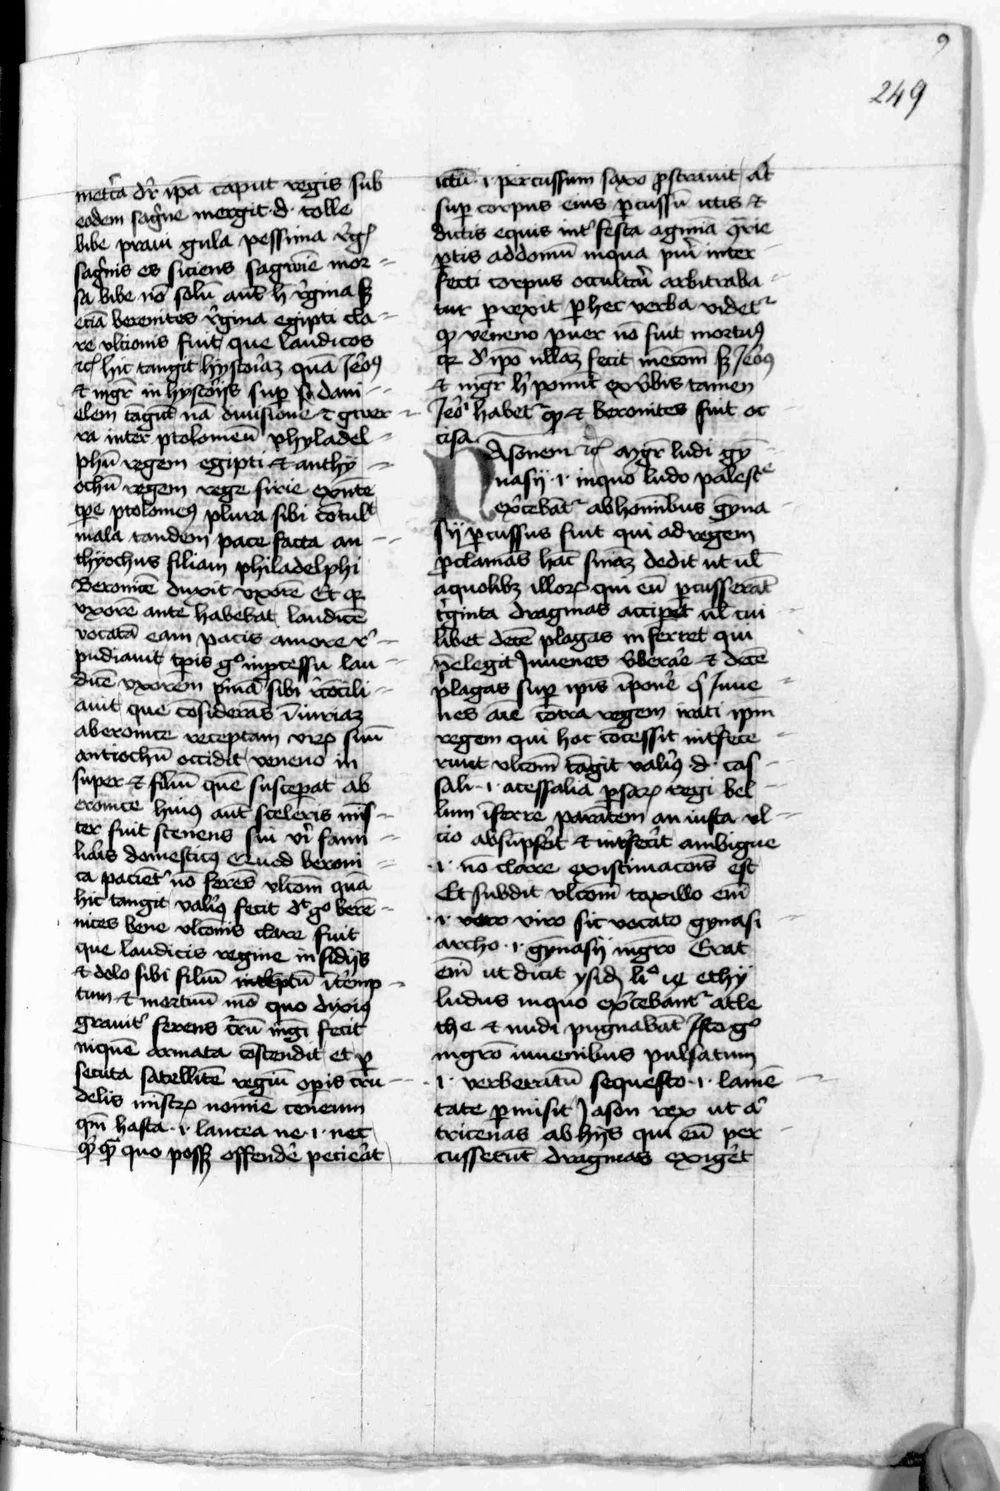 9
249
metr̄a dr̄ ip̄a caput regis sub
eodem sag̾ne mergit · d · tolle
bibe praui gula pessima
sag̾nis es siciens sagwīe mor-
sa bibe nō solū aut̄ h̾ r̾gina sꝫ
eciā berenites r̾gina egipti cla-
re vltionis fuit que laudicos
rcꝭ hic tangit hystoriaꝫ quā Jeroꝰ
et mgr̄ in hystoriis sup̱ dani
elem tāgūt nā diuisione et gwer-
ra inter ptolomeū phyladel-
phū regem egipti et anthy-
ochū regem sirie
tp̄e ptolomeꝰ plura sibi cōtulꝭ
mala tandem pace facta an-
thyochus filiam philadelphi
Beronicē duxit vxorē Et qꝛ
vxorē ante habebat laudicē
vocatā eam pacis amore r̾-
pudiauit tp̱is gͦ inp̱cessu lau-
dicē vxorem p̱mā sibi r̾cōcili-
auit que cōsiderās īiuriaꝫ
aberonice receptam virꝝ suū
antiochū occidit veneno in
super et filiū quē suscep̱at ab
eronice huiꝰ aut̄ sceleris mīs-
ter fuit scenens sui vͥ fami-
liaris domesticꝰ Quod beroni-
ca pacient̾ nō ferēs vlcōm quā
hic tangit valiꝰ fecit dͭ gͦ berē-
nices bene vlcōnis clare fuit
que laudicis regine in sidijs
et dolo sibi filiū īt̾emp-
tum et mortuū mō quo dixiꝰ
grauit̾ ferens
inquē armata cōscendit et p̱
secuta satellitē regiū opis cru-
delis mīstꝝ nomīe cenenm
qm̄ hasta · i · lancea ne · i · nec
quo posꝫ offend̾e pecierat
ictū · i · percussum saxo p̱strauit at
sup̱ corpus eius p̱cussū ictis et
dictis equis int̾ festa agmīa
p̱tis addomū inqua pu̾i inter
fecti corpus occultū arbitraba-
tur p̱rexit p̱ hec verba videt̾
qꝫ veneno puer nō fuit mortuꝰ
qꝛ d̾ ip̄o nllaꝫ fecit mecōm sꝫ Jeroꝰ
et mgr̄ h̾ ponūt ex v̾bis tamen
Jeroͥ habet̾ qꝫ et beronices fuit oc-
cisa
Nasonem rcꝭ mgr̄ ludi gȳ-
nasij · i · inquo ludo palest̾e
ex̾cebāt̾ abhomīibus gȳna
sij p̱cussus fuit qui ad regem
p̱clamās hāc sniāꝫ dedit ut ul̄
aquolibꝫ illorꝝ qui eū p̱cusserāt
t̾ginta dragmas accip̱et ul̄ cui
libet decē plagas inferret qui
p̱elegit Juuenes v̾berare et decē
plagas sup̱ ip̄is īpon̾e qͥ Juue-
nes aīe cōtra regem irati ip̄m
regem qui hoc cōcessit int̾fece-
runt vlcōm tāgit valiꝰ · d · cas-
sali · i · atessalia p̱sarꝝ regi bel-
lum īferre parātem an iusta vl-
cio absūps̾it et int̾fec̾it ambigue
· i · nō clare existimacōis est
Et subdit vlcōm taxillo em̄
· i · viro sic vocato gynasi-
archo · i · gȳnasij mgr̄o Erat
em̄ ut dicit ysid̾ liͦ ie ethy
ludus inquo ex̾cebant̾ atle
the et nudi pugnabāt Jsto gͦ
mgr̄o iuuenibus pulsatum
· i · verberatū sequesto · i · lamē-
tate p̱misit Jason rex ut a̾
tricenas ab hijs qui eū per
cusserūt dragmas exig̾et